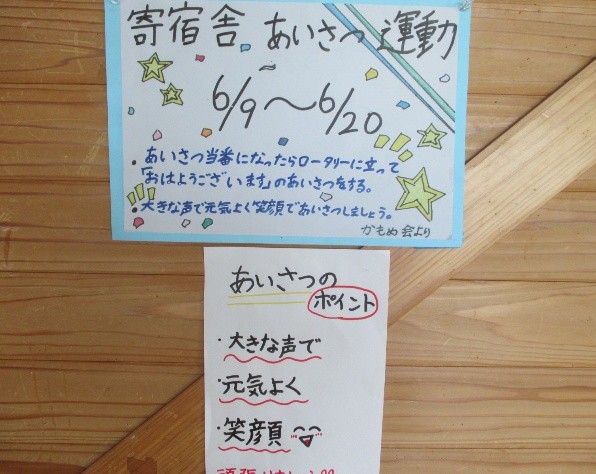 寄宿舎 あいさつ運動
6/9～6/20
・あいさつ当番になったらロータリーに立って
「おはようございます」のあいさつをする。
・大きな声で元気よく笑顔であいさつしましょう。
かもめ会より
あいさつの
ポイント
・大きな声で
・元気よく
・笑顔